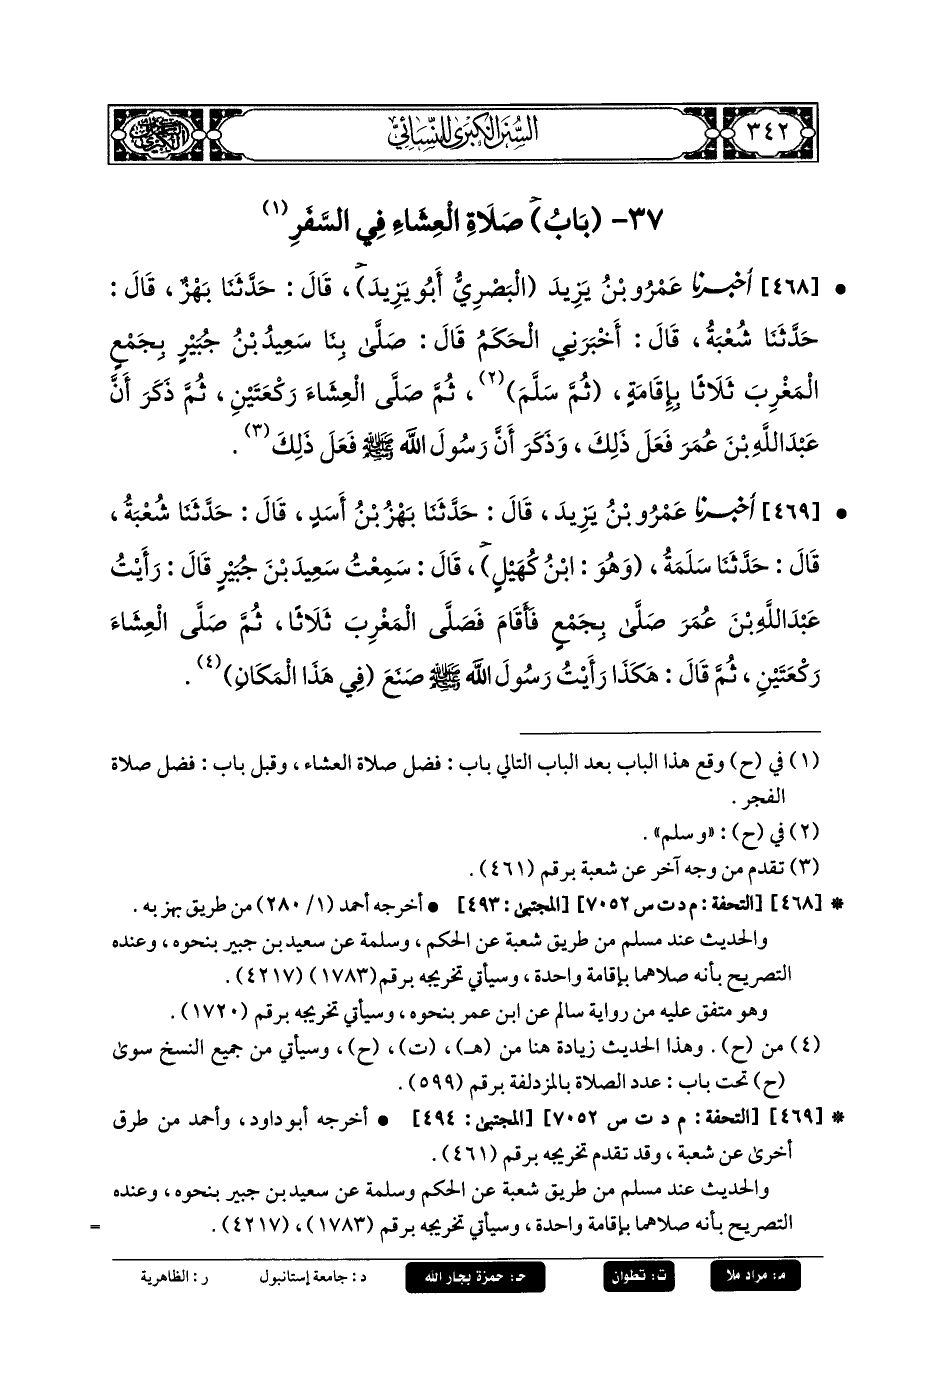 ٣٤٢
السنن الكبرى للنسائي
٣٧- (بَابُ) صَلَاةِ الْعِشَاءِ فِي السَّفَرِ (١)
• [٤٦٨] أخبرنا عَمْرُو بْنُ يَزِيدَ (الْبَصْرِيُّ أَبُو يَزِيدَ)، قَالَ : حَدَّثَنَا بَهْزٌ، قَالَ :
حَدَّثَنَا شُعْبَةُ، قَالَ : أَخْبَرَنِي الْحَكَمُ قَالَ : صَلَّى بِنَا سَعِيدُ بْنُ جُبَيْرٍ بِجَمْعٍ
الْمَغْرِبَ ثَلَاثًا بِإِقَامَةٍ، (ثُمَّ سَلَّمَ)(٢)، ثُمَّ صَلَّى الْعِشَاءَ رَكْعَتَيْنِ، ثُمَّ ذَكَرَ أَنَّ
عَبْدَ اللَّهِ بْنَ عُمَرَ فَعَلَ ذَلِكَ، وَذَكَرَ أَنَّ رَسُولَ اللَّهِ ﷺ فَعَلَ ذَلِكَ(٣).
• [٤٦٩] أخبرنا عَمْرُو بْنُ يَزِيدَ، قَالَ : حَدَّثَنَا بَهْزُ بْنُ أَسَدٍ، قَالَ : حَدَّثَنَا شُعْبَةُ،
قَالَ : حَدَّثَنَا سَلَمَةُ، (وَهُوَ : ابْنُ كُهَيْلٍ)، قَالَ : سَمِعْتُ سَعِيدَ بْنَ جُبَيْرٍ قَالَ : رَأَيْتُ
عَبْدَ اللَّهِ بْنَ عُمَرَ صَلَّى بِجَمْعٍ فَأَقَامَ فَصَلَّى الْمَغْرِبَ ثَلَاثًا، ثُمَّ صَلَّى الْعِشَاءَ
رَكْعَتَيْنِ، ثُمَّ قَالَ : هَكَذَا رَأَيْتُ رَسُولَ اللَّهِ ﷺ صَنَعَ (فِي هَذَا الْمَكَانِ)(٤).
(١) في (ح) وقع هذا الباب بعد الباب التالي باب : فضل صلاة العشاء، وقبل باب : فضل صلاة
الفجر.
(٢) في (ح) : «وسلم».
(٣) تقدم من وجه آخر عن شعبة برقم (٤٦١).
* [٤٦٨] [التحفة : م د ت س ٧٠٥٢] [المجتبى : ٤٩٣] • أخرجه أحمد (١/ ٢٨٠) من طريق بهز به.
والحديث عند مسلم من طريق شعبة عن الحكم، وسلمة عن سعيد بن جبير بنحوه، وعنده
التصريح بأنه صلاهما بإقامة واحدة، وسيأتي تخريجه برقم (١٧٨٣) (٤٢١٧).
وهو متفق عليه من رواية سالم عن ابن عمر بنحوه، وسيأتي تخريجه برقم (١٧٢٠).
(٤) من (ح). وهذا الحديث زيادة هنا من (هـ)، (ت)، (ح)، وسيأتي من جميع النسخ سوى
(ح) تحت باب : عدد الصلاة بالمزدلفة برقم (٥٩٩).
* [٤٦٩] [التحفة : م د ت س ٧٠٥٢] [المجتبى : ٤٩٤] • أخرجه أبو داود، وأحمد من طرق
أخرى عن شعبة، وقد تقدم تخريجه برقم (٤٦١).
والحديث عند مسلم من طريق شعبة عن الحكم وسلمة عن سعيد بن جبير بنحوه، وعنده
التصريح بأنه صلاهما بإقامة واحدة، وسيأتي تخريجه برقم (١٧٨٣)، (٤٢١٧). =
مـ: مراد ملا ت: تطوان حـ: حمزة بجار الله د: جامعة إستانبول ر: الظاهرية